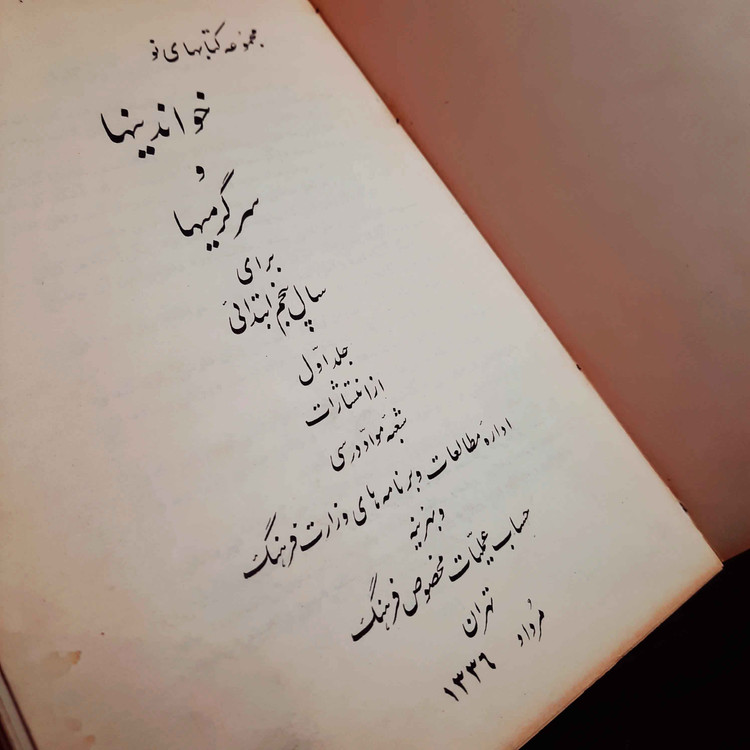 مجموعه کتابهای نو
خواندنیها
و
سرگرمیها
برای
سال پنجم ابتدائی
جلد اوّل
از انتشارات
شعبهٔ موادّ درسی
ادارهٔ مطالعات و برنامه های وزارت فرهنگ
و بهزینهٔ
حساب عملیّات مخصوص فرهنگ
تهران
مُرداد ۱۳۳۶